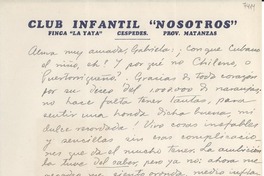 7411
CLUB INFANTIL "NOSOTROS"
FINCA "LA YAYA" CESPEDES. PROV. MATANZAS
Alma muy amada, Gabriela: ¿Con que Cubano
el niño, eh? Y por qué no Chileno, o
Puertorriqueño? Gracias de todo corazón
por su deseo del 100.000 de naranjas;
no hace falta tantas, para
sentir una honda dicha buena mi
dulce recordada! Vivo cosas inefables
y sencillas sin esas complicacio
nes que da el mucho tener. La ambición
la tuve del saber, pero ya no; ahora me